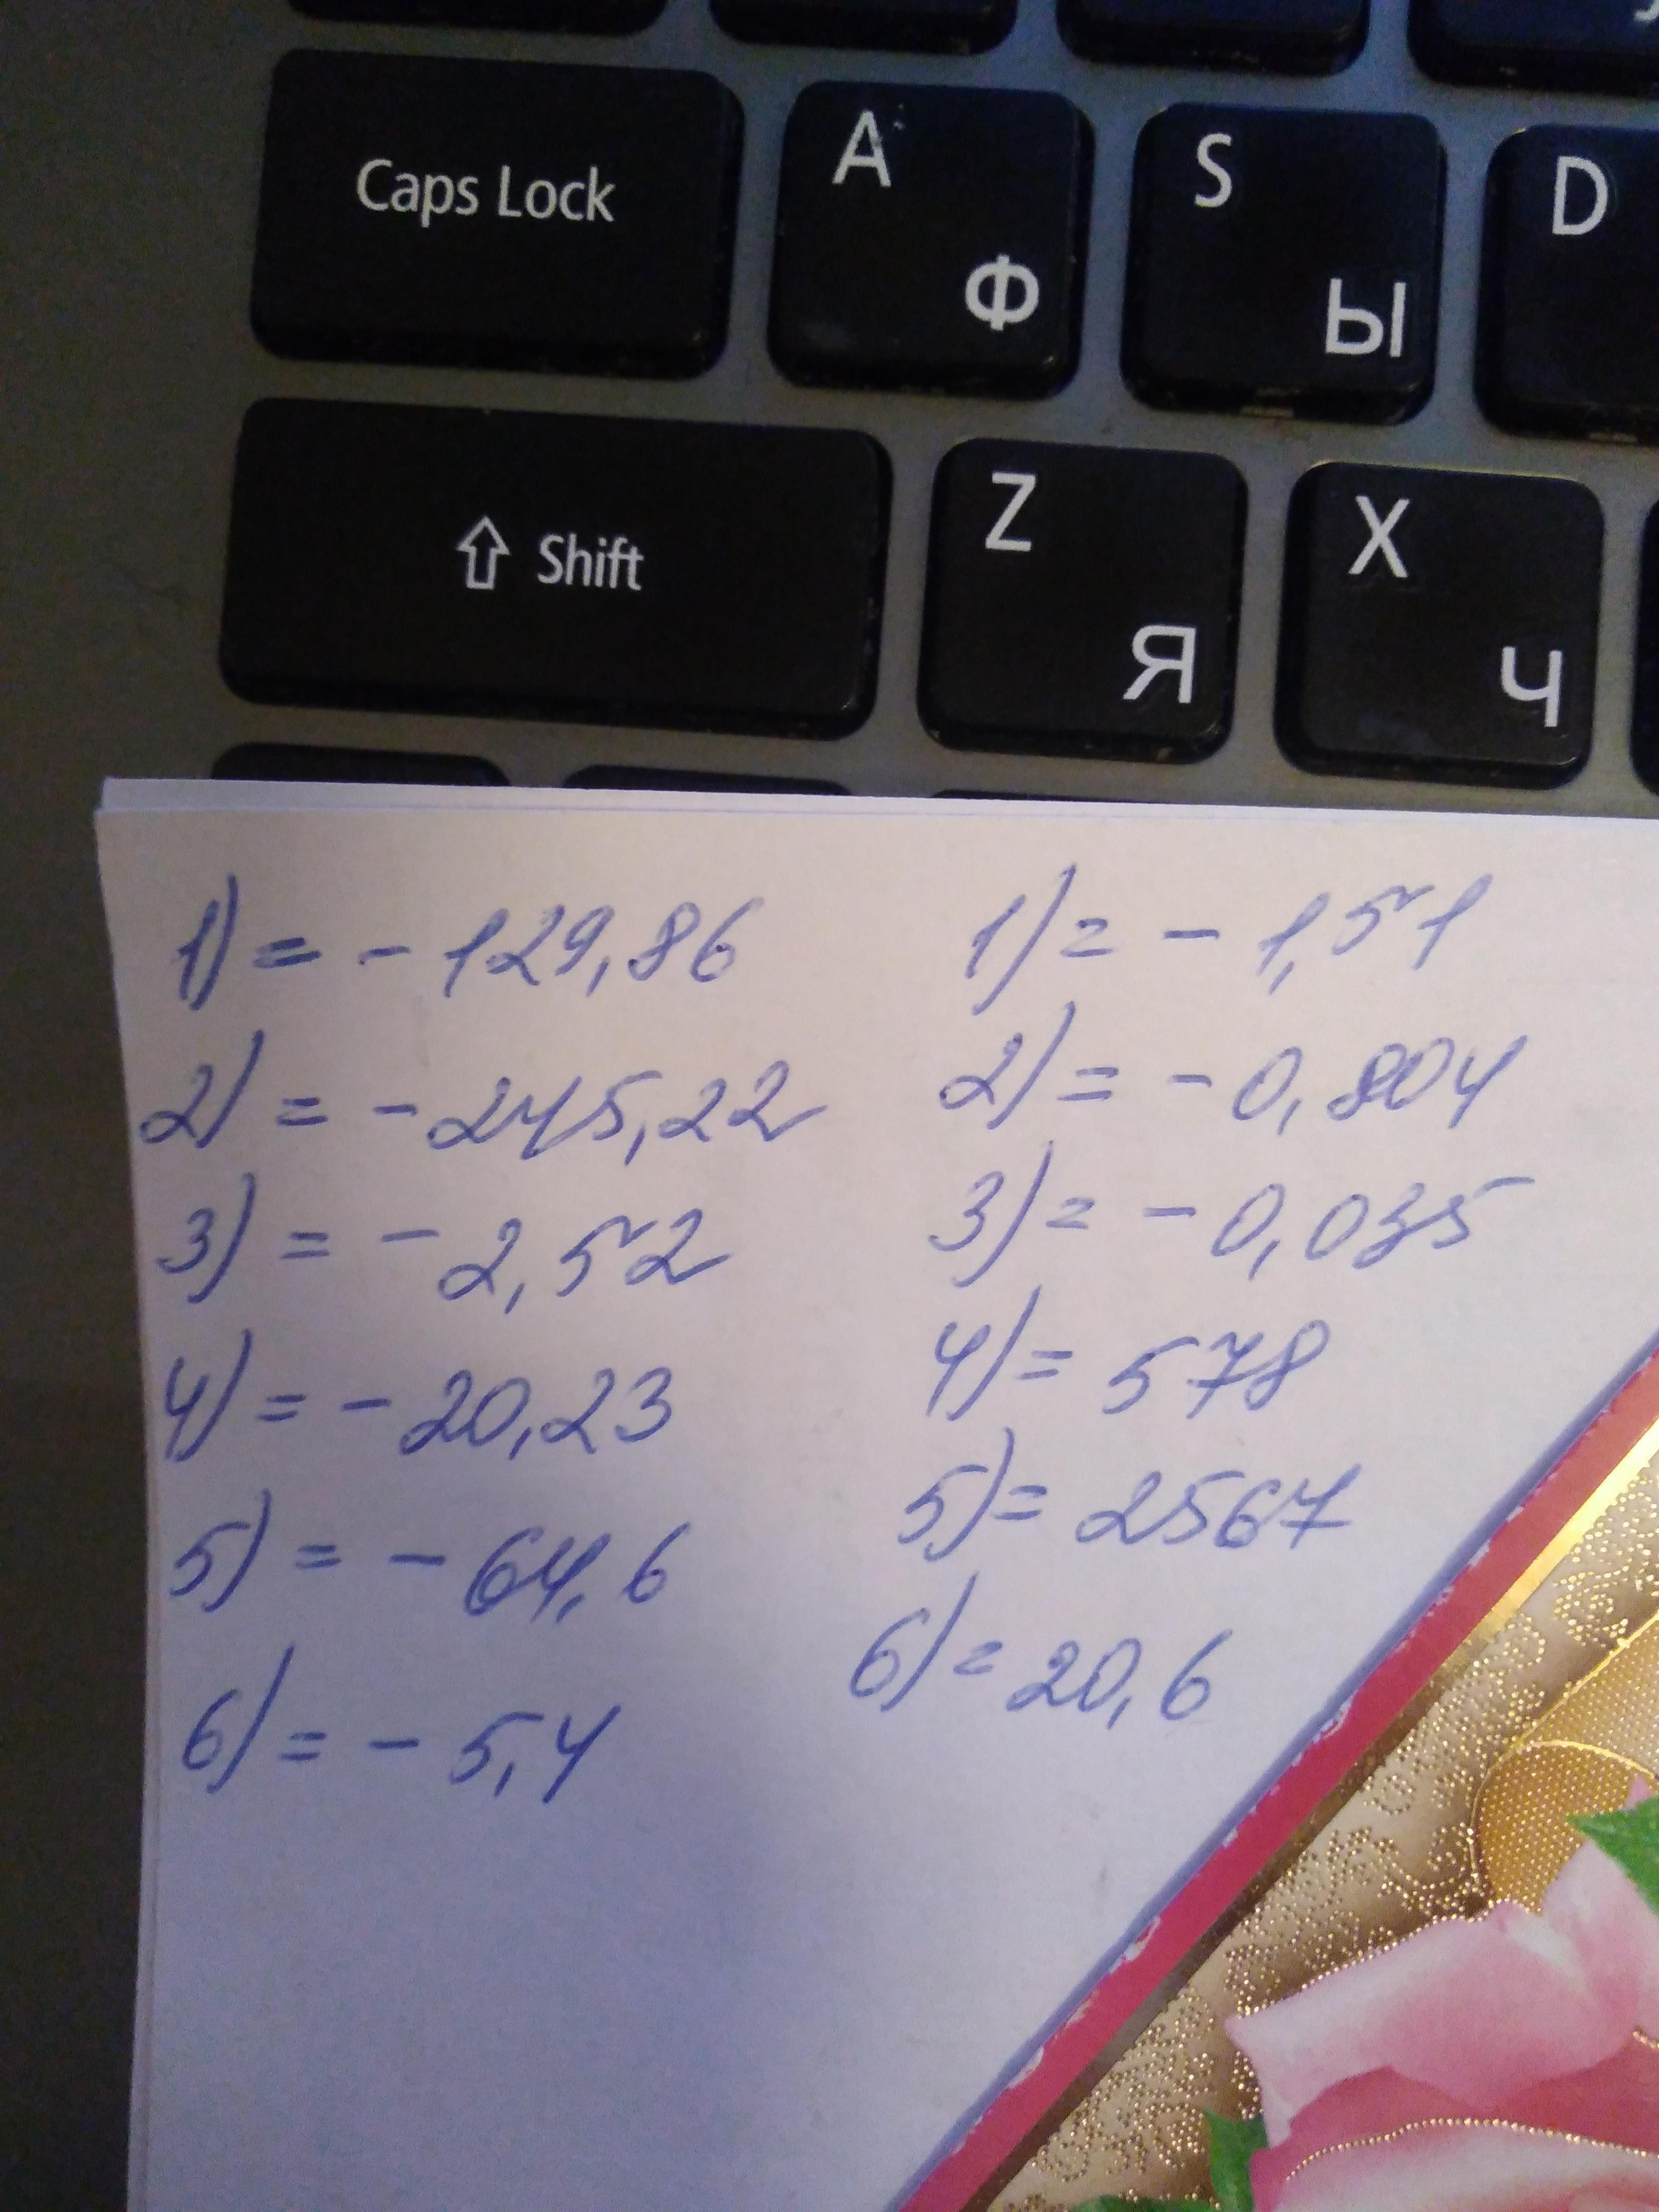 Caps Lock
A
Ф
S
Ы
D
⇧ Shift
Z
Я
X
Ч
1) = - 129,86
2) = - 245,22
3) = - 2,52
4) = - 20,23
5) = - 64,6
6) = - 5,4
1) = - 1,51
2) = - 0,804
3) = - 0,035
4) = 578
5) = 2567
6) = 20,6